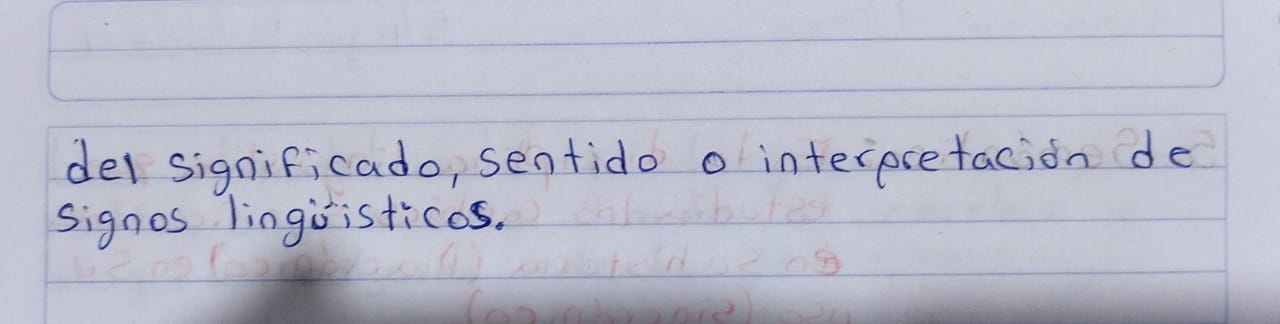 del significado, sentido o interpretación de
signos lingüisticos.